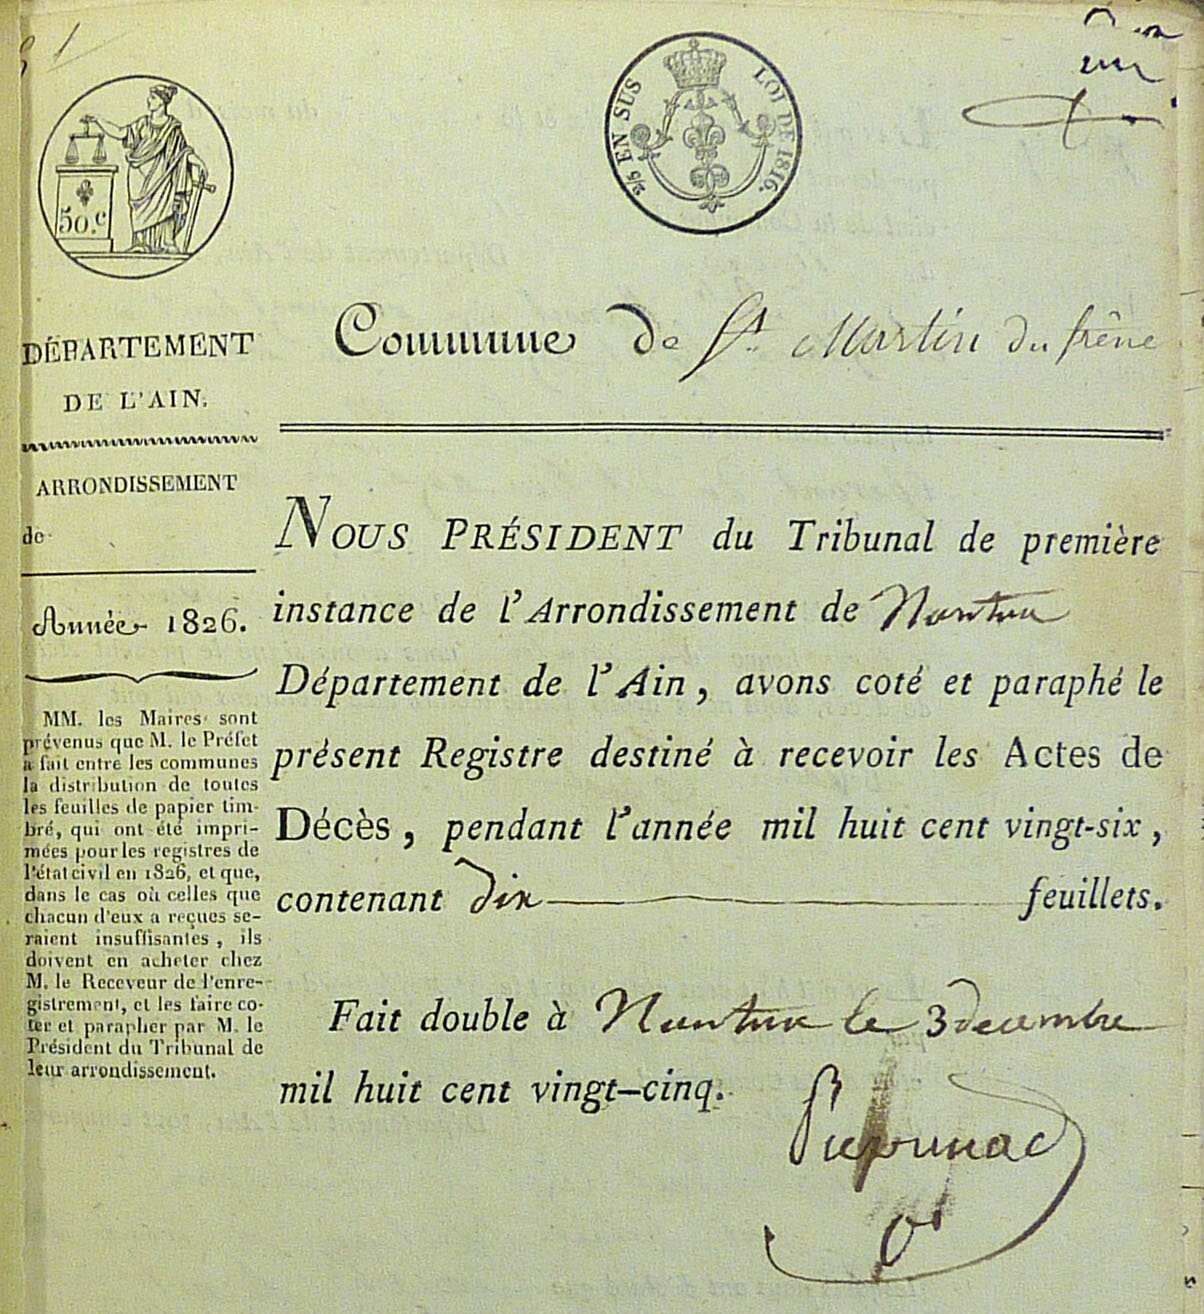 1
50.c
2/5 EN SUS LOI DE 1816.
un
DÉPARTEMENT
DE L'AIN.
ARRONDISSEMENT
de
Année 1826.
MM. les Maires sont
prévenus que M. le Préfet
a fait entre les communes
la distribution de toutes
les feuilles de papier tim-
bré, qui ont été impri-
mées pour les registres de
l'état civil en 1826, et que,
dans le cas où celles que
chacun d'eux a reçues se-
raient insuffisantes, ils
doivent en acheter chez
M. le Receveur de l'enre-
gistrement, et les faire co-
ter et parapher par M. le
Président du Tribunal de
leur arrondissement.
Commune de St. Martin du frêne
NOUS PRÉSIDENT du Tribunal de première
instance de l'Arrondissement de Nantua
Département de l'Ain, avons coté et paraphé le
présent Registre destiné à recevoir les Actes de
Décès, pendant l'année mil huit cent vingt-six,
contenant dix feuillets.
Fait double à Nantua le 3 decembre
mil huit cent vingt-cinq.